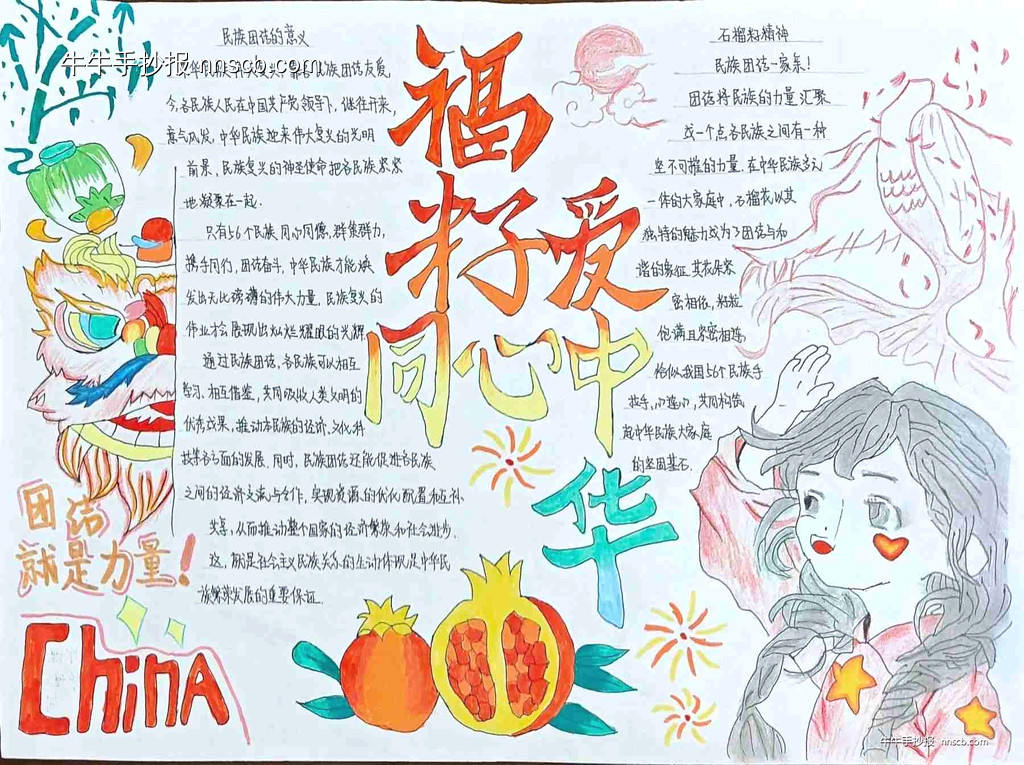 民族团结的意义
牛牛手抄报 nnscb.com
族团结友爱,
今,各民族人民在中国共产党领导下,继往开来,
意气风发,中华民族迎来伟大复兴的光明
前景,民族复兴的神圣使命把各民族紧紧
地凝聚在一起.
只有56个民族同心同德,群集群力,
携手同行,团结奋斗,中华民族才能焕
发出无比磅礴的伟大力量,民族复兴的
伟业才会展现出灿烂耀眼的光辉
通过民族团结,各民族可以相互
学习,相互借鉴,共同吸收人类文明的
优秀成果,推动本民族的经济、文化、科
技等各方面的发展.同时,民族团结还能促进各民族
之间的经济交流与合作,实现资源的优化配置和互补
共享,从而推动整个国家的经济繁荣和社会进步.
这,既是社会主义民族关系的生动体现是中华民
族繁荣发展的重要保证.
福
籽 爱
同心中
华
石榴籽精神
民族团结一家亲!
团结将民族的力量汇聚
成一个点各民族之间有一种
坚不可摧的力量.在中华民族多元
一体的大家庭中,石榴花以其
独特的魅力成为了团结与和
谐的象征,其花朵紧
密相依,籽粒
饱满且紧密相连,
恰似我国56个民族手
拉手,心连心,共同构筑
起中华民族大家庭
的坚固基石.
团结
就是力量!
China
牛牛手抄报 nnscb.com